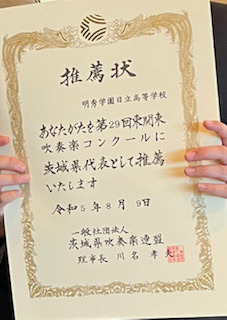 推薦状
明秀学園日立高等学校
あなたがたを第29回東関東
吹奏楽コンクールに
茨城県代表として推薦
いたします
令和5年8月9日
一般社団法人
茨城県吹奏楽連盟
理事長 川名 孝